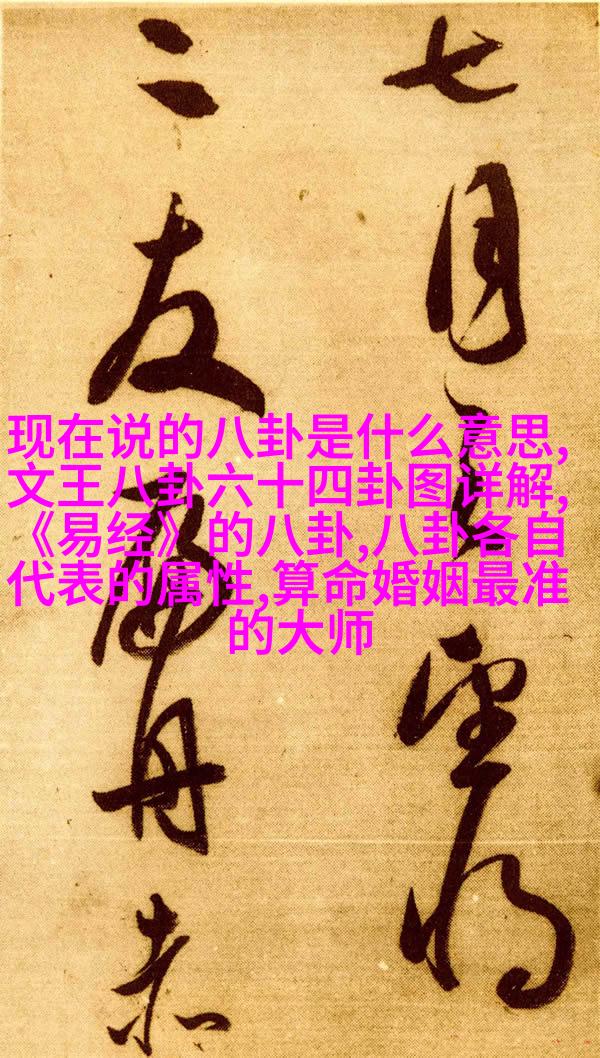 七月望将
二友舟赤
现在说的八卦是什么意思,
文王八卦六十四卦图详解,
《易经》的八卦,八卦各自
代表的属性,算命婚姻最准
的大师